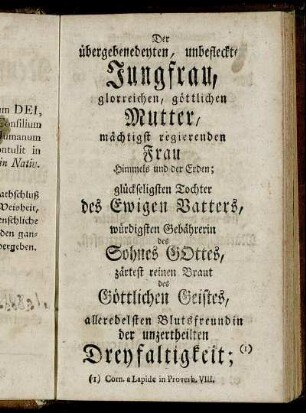 um DEI,
Consilium
Humanum
ontulit in
in Nativ.
athschluß
Weisheit,
enschliche
den gan-
ergeben.
Der
übergebenedeyten, unbefleckt-
Jungfrau,
glorreichen, göttlichen
Mutter,
mächtigst regierenden
Frau
Himmels und der Erden;
glückseligsten Tochter
des Ewigen Vatters,
würdigsten Gebährerin
des
Sohnes GOttes,
zärtest reinen Braut
des
Göttlichen Geistes,
alleredelsten Blutsfreundin
der unzertheilten
Dreyfaltigkeit; (1)
(1) Corn. a Lapide in Proverb. VIII.